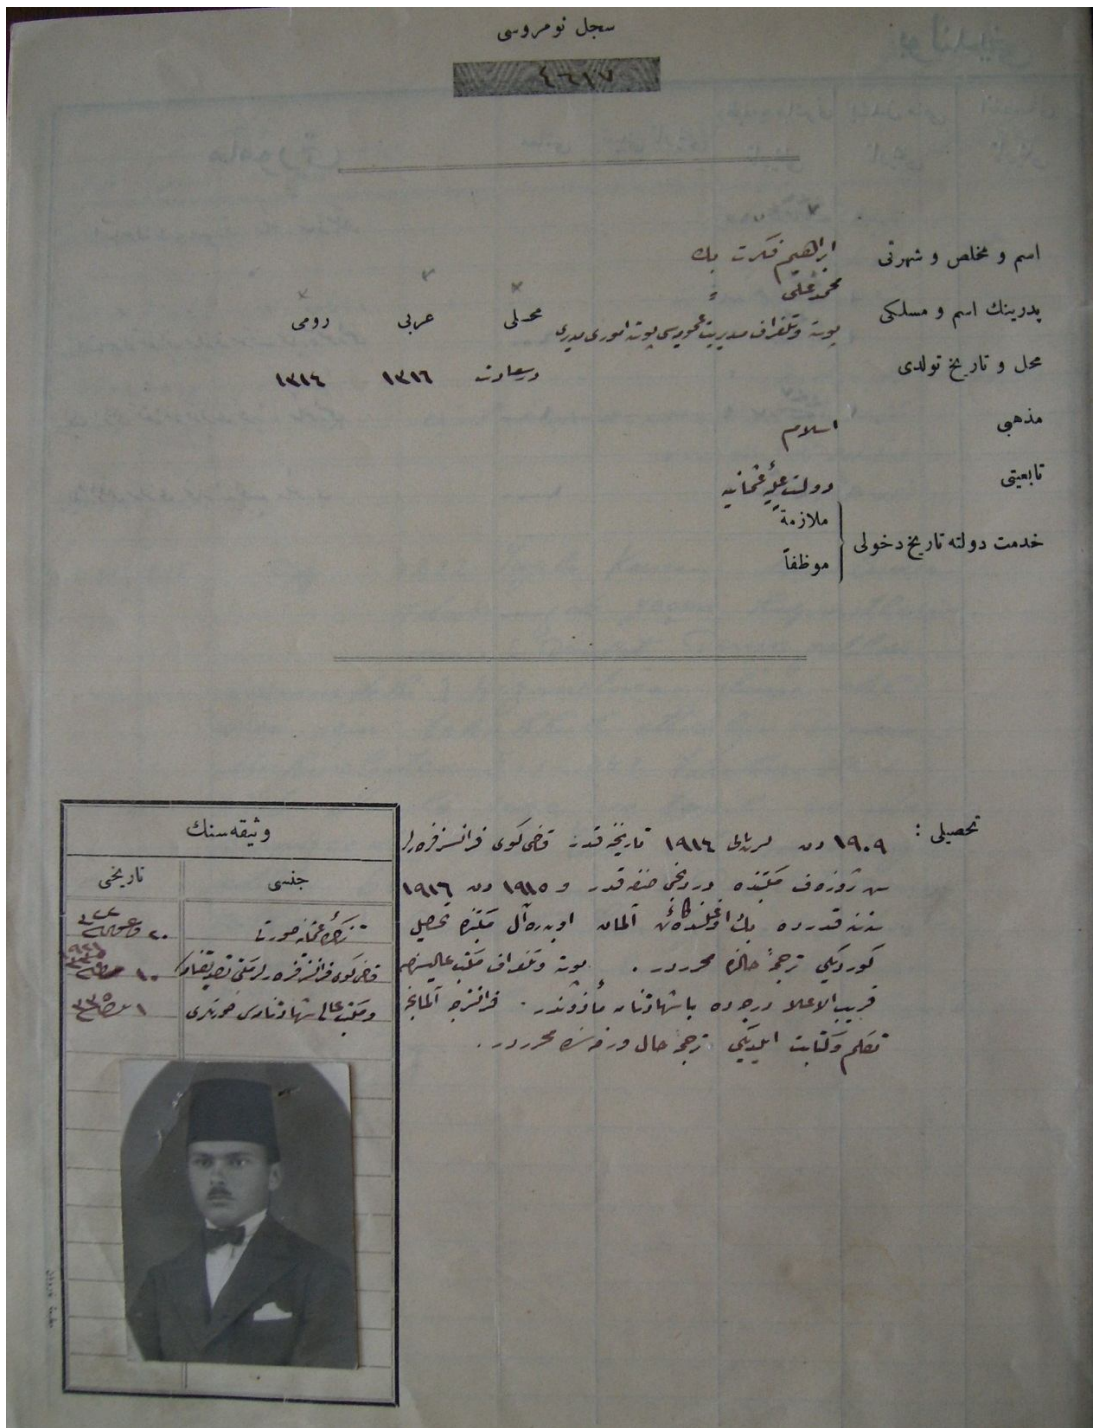 سجل نومروسی
٤٦١٧
اسم و مخلص و شهرتی
ابراهیم فكرت بك
پدرینك اسم و مسلكی
محمد علی
پوسته و تلغراف مدیریت عمومیسی پوسته اموری مدیری
محل و تاریخ تولدی
محلی عربی رومی
درسعادت ١٣١٦ ١٣١٤
مذهبی
اسلام
تابعیتی
دولت علیهٔ عثمانیه
خدمت دولته تاریخ دخولی
ملازمةً
موظفاً
تحصیلی :
١٩٠٩ دن ١٩١٤ تاریخنه قدر قاضی كوی فرانسز فره‌ر لر
سن ژوزه‌ف مكتبنده دردنجی صنفه قدر و ١٩١٥ دن ١٩١٦
سنه‌سنه قدرده بك اوغلنده كائن آلمان اوبر ره‌آل مكتبنده تحصیل
كوردیكی ترجمهٔ حالنده محرردر . پوسته و تلغراف مكتب عالیسندن
قریب الاعلا درجه‌ده باشهادتنامه مأذوندر . فرانسزجه آلمانجه
تكلم و كتابت ایلدیكی ترجمهٔ حال ورقه‌سنده محرردر .
وثیقه سنك
جنسی تاریخی
تذكرهٔ عثمانیه صورتی ٢٠
قاضی كوی فرانسز فره‌ر لر مكتبی تصدیقنامه ١٠
و مكتب عالی شهادتنامه‌سی صورتلری ١ ٣٣٥